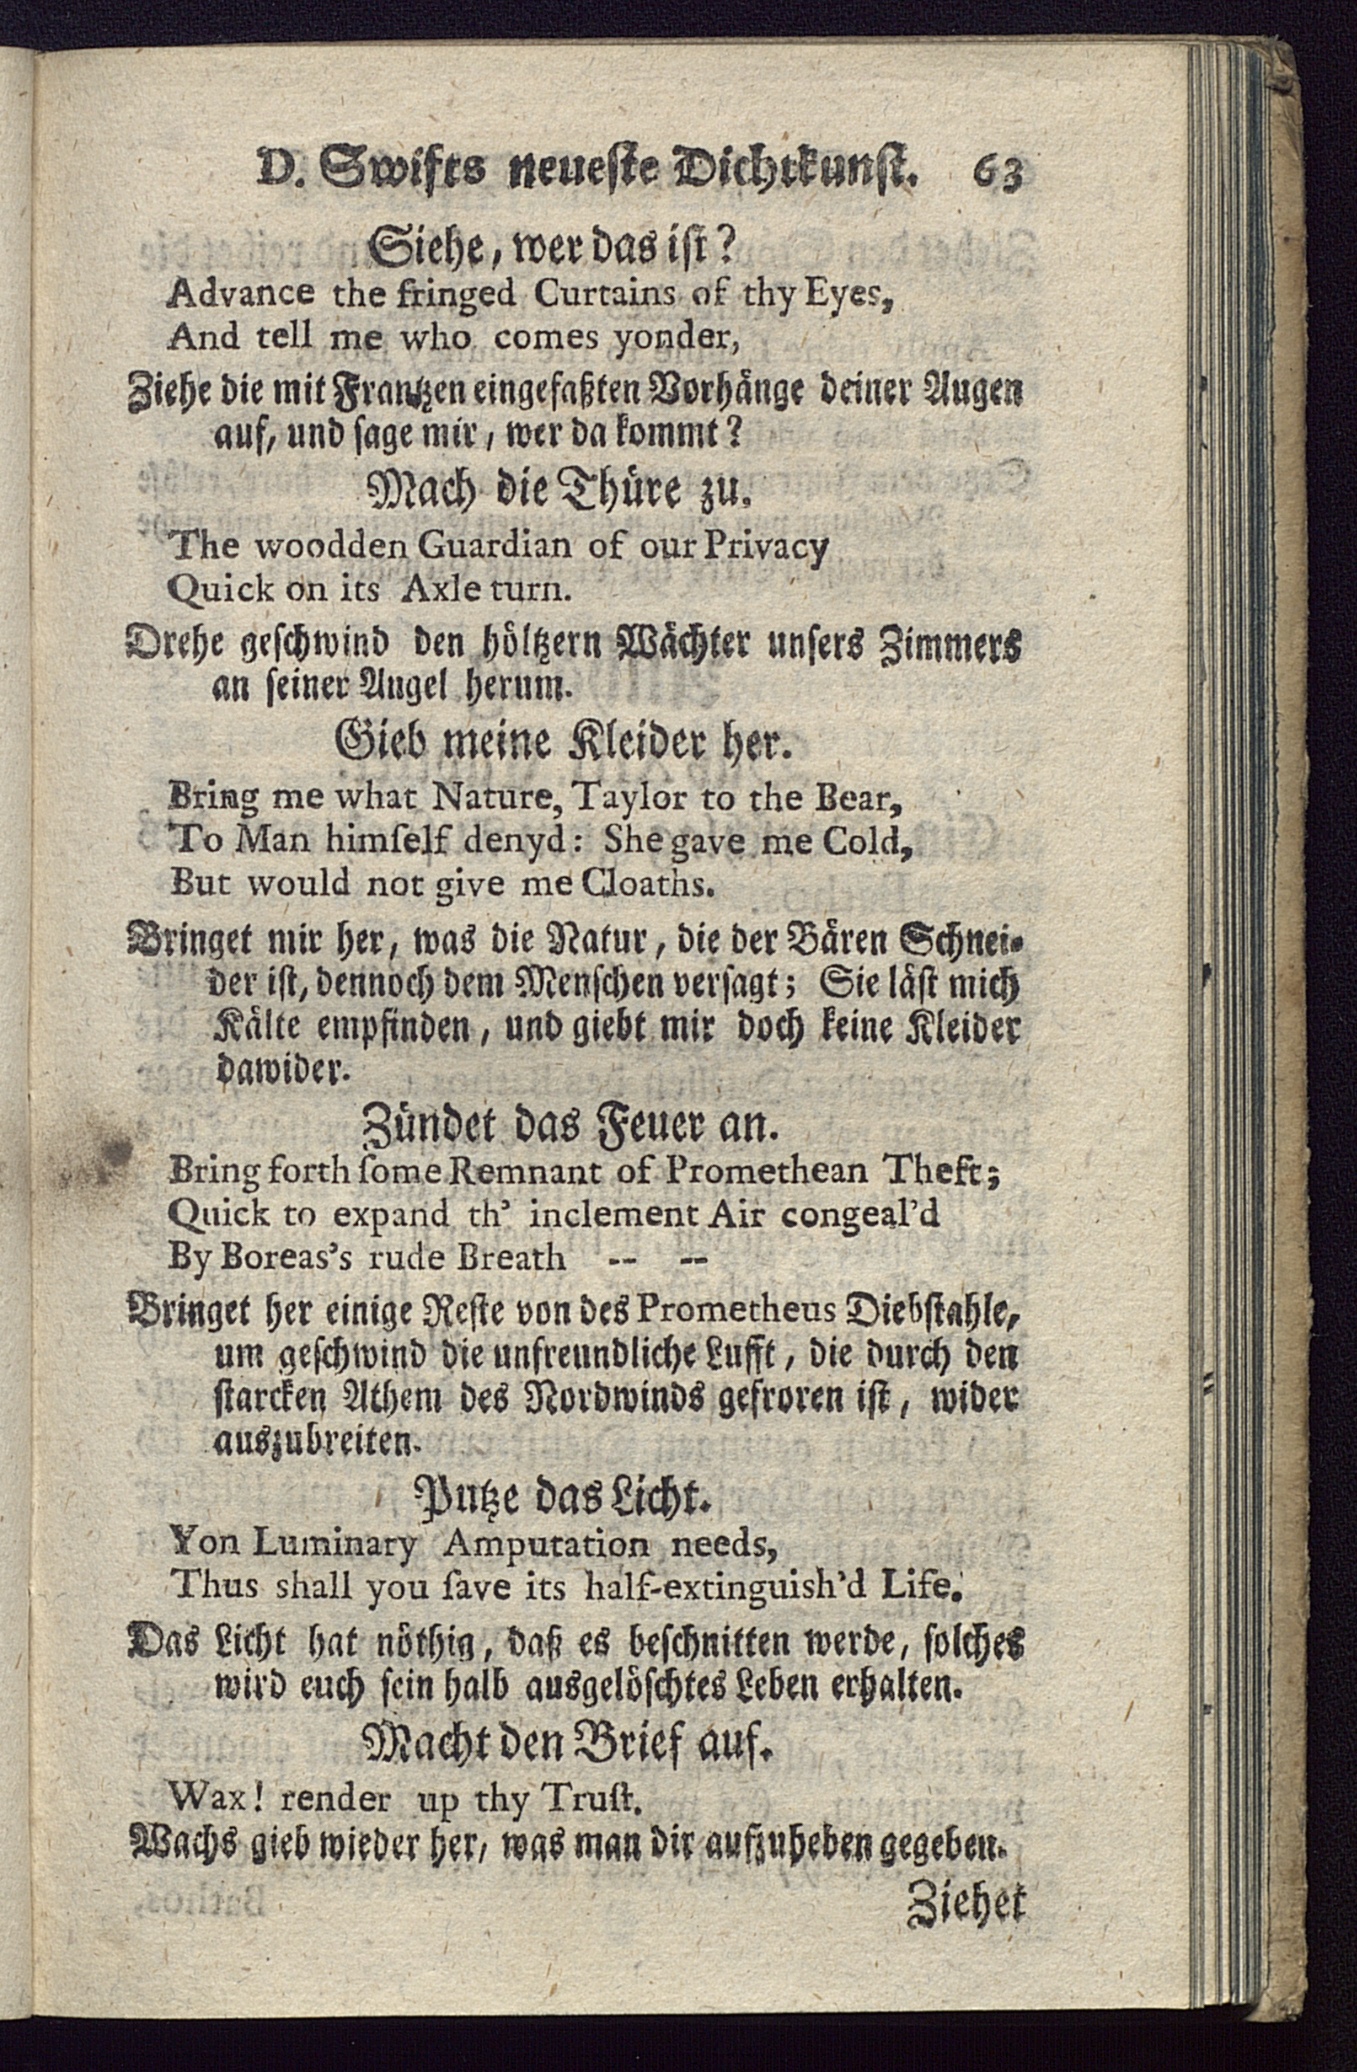 D. Swifts neueste Dichtkunst. 63
Siehe, wer das ist?
Advance the fringed Curtains of thy Eyes,
And tell me who comes yonder,
Ziehe die mit Frantzen eingefaßten Vorhänge deiner Augen
auf, und sage mir, wer da kommt?
Mach die Thüre zu.
The woodden Guardian of our Privacy
Quick on its Axle turn.
Drehe geschwind den höltzern Wächter unsers Zimmers
an seiner Angel herum.
Gieb meine Kleider her.
Bring me what Nature, Taylor to the Bear,
To Man himſelf denyd: She gave me Cold,
But would not give me Cloaths.
Bringet mir her, was die Natur, die der Bären Schnei-
der ist, dennoch dem Menschen versagt; Sie läst mich
Kälte empfinden, und giebt mir doch keine Kleider
dawider.
Zündet das Feuer an.
Bring forth ſome Remnant of Promethean Theft;
Quick to expand th' inclement Air congeal'd
By Boreas's rude Breath -- --
Bringet her einige Reste von des Prometheus Diebstahle,
um geschwind die unfreundliche Lufft, die durch den
starcken Athem des Nordwinds gefroren ist, wider
auszubreiten.
Putze das Licht.
Yon Luminary Amputation needs,
Thus shall you ſave its half-extinguish'd Life.
Das Licht hat nöthig, daß es beschnitten werde, solches
wird euch sein halb ausgelöschtes Leben erhalten.
Macht den Brief auf.
Wax! render up thy Truſt.
Wachs gieb wieder her, was man dir aufzuheben gegeben.
Ziehet